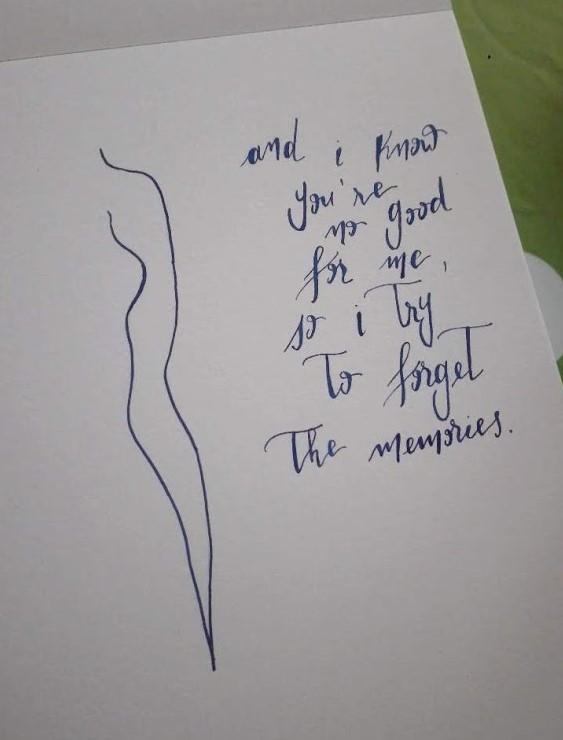 and i know
you're
no good
for me,
so i try
To forget
The memories.